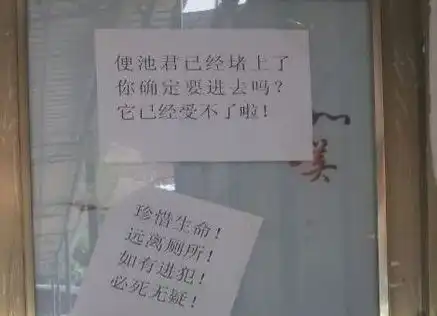 便池君已经堵上了
你确定要进去吗？
它已经受不了啦！
美
珍惜生命！
远离厕所！
如有进犯！
必死无疑！